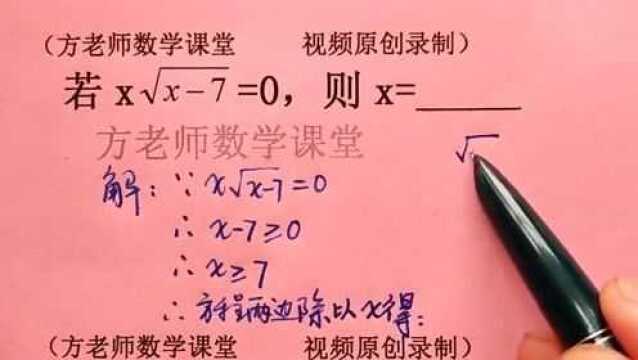 （方老师数学课堂 视频原创录制）
若 x√x-7 =0，则 x=______
方老师数学课堂
√
解：∵ x√x-7=0
∴ x-7≥0
∴ x≥7
∴ 方程两边除以x得：
（方老师数学课堂 视频原创录制）